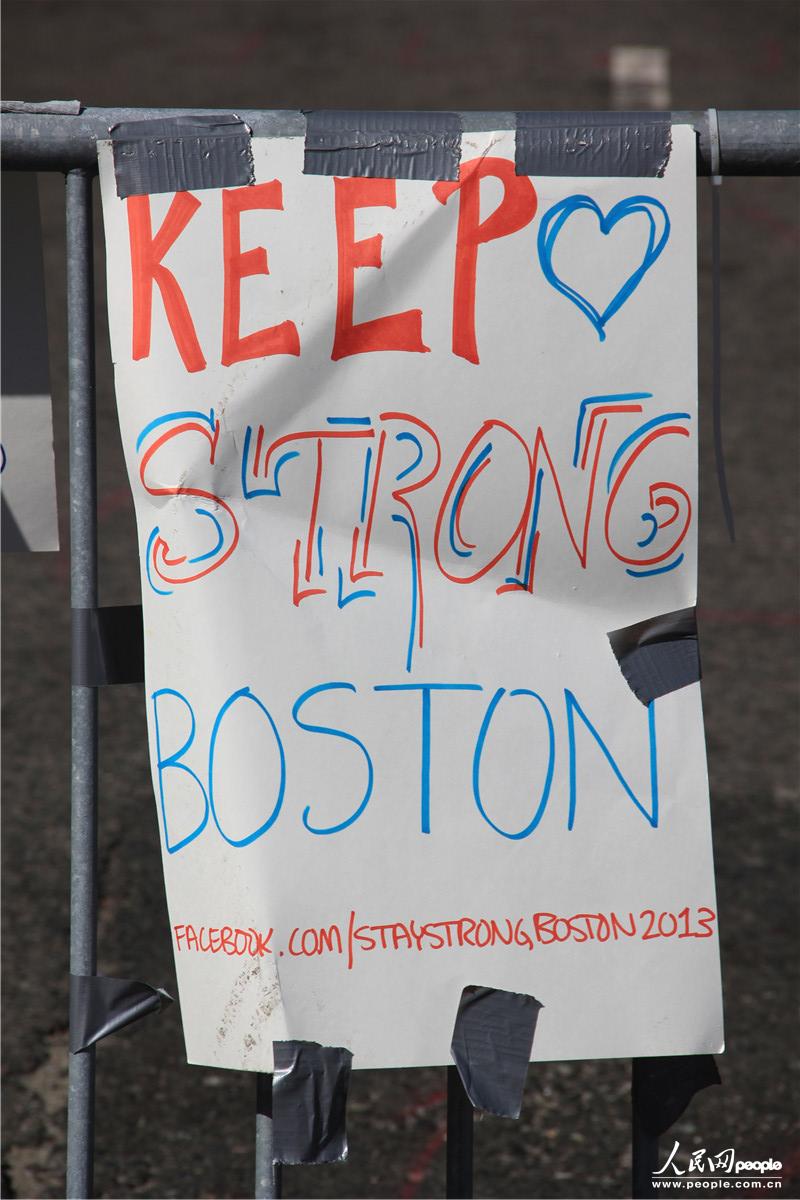 KEEP
STRONG
BOSTON
FACEBOOK.COM/STAYSTRONGBOSTON2013
人民网 people
www.people.com.cn